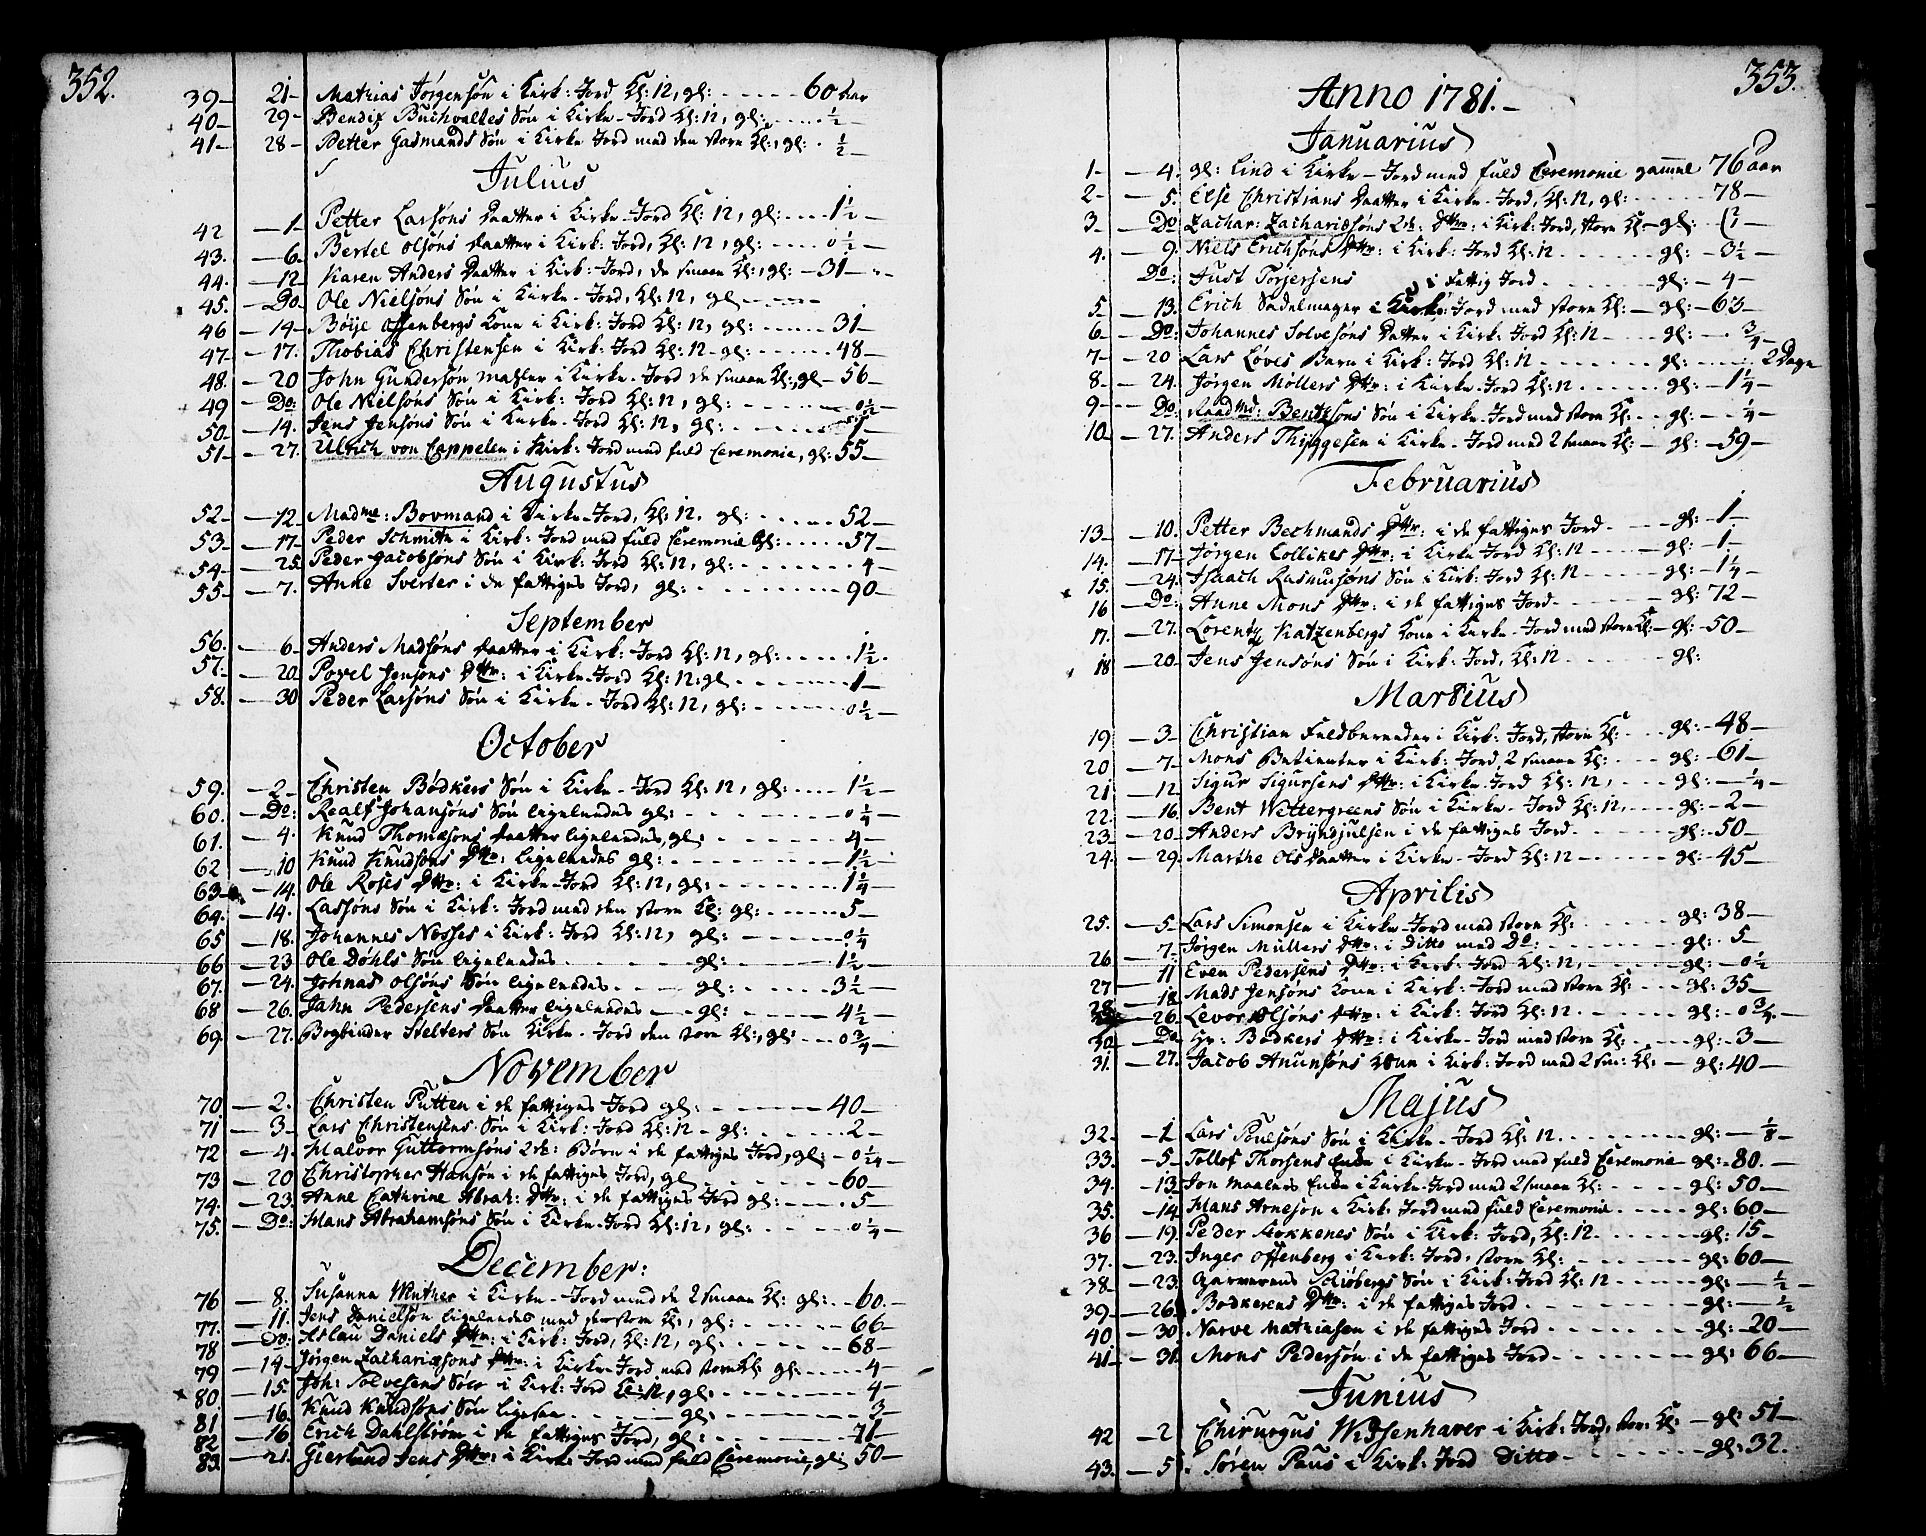 352.
39 – 21 – Mathias Jörgensön i Kirk: Jord Kl: 12, gl: 60 aar
40 – 29 – Bendix Buchvaltes Sön i Kirke-Jord Kl: 12, gl: ½
41 – 28 – Petter Gasmands Sön i Kirke Jord med den store Kl:, gl: ½
Julius
42 – 1 – Petter Larsöns Daatter i Kirke-Jord Kl: 12, gl: 1½
43. – 6 – Bertel Olsöns Daatter i Kirk: Jord, Kl: 12, gl: 0½
44. – 12 – Karen Anders Daatter i Kirk: Jord, de smaae Kl:, gl: 31
45. – Do Ole Nielsöns Sön i Kirke-Jord, Kl: 12, gl
46 – 14 – Böije Offenbergs Kone i Kirk: Jord Kl: 12, gl: 31
47. – 17. Thobias Christensen i Kirk: Jord Kl: 12 gl: 48
48. – 20 John Gundersön Mahler i Kirke-Jord de smaae Kl:, gl 56
49 – Do: Ole Nielsöns Sön i Kirk: Jord Kl: 12, gl: 0½
50 – 14. Jens Jensöns Sön i Kirke-Jord Kl: 12, gl:
51 – 27. Ulrich von Cappelen i Kirk: Jord med fuld Ceremonie, gl: 55
Augustus
52 – 12 – Madme: Bovmand i Kirke-Jord, Kl: 12, gl: 52
53 – 17 – Peder Schmith i Kirk: Jord med fuld Ceremonie Gl: 57
54 – 25 Peder Jacobsöns Sön i Kirk: Jord Kl: 12, gl: 4
55 – 7. Anne Sverter i de fattiges Jord, gl: 90
September
56. – 6 – Anders Madsöns Daatter i Kirk: Jord Kl: 12, gl: 1½
57. – 20 Povel Jensöns Dttr: i Kirke-Jord Kl: 12. gl 1
58. – 30 Peder Larsöns Sön i Kirke-Jord Kl: 12, gl: 0½
October
59. – 2 – Christen Bödkers Sön i Kirke-Jord Kl: 12, gl: 1½
60. – Do: Realf Johansöns Sön ligeledes gl: 0¼
61. – 4. Knud Thomæsöns Daatter ligeledes, gl: 4
62 – 10 Knud Knudsöns Dttr: ligeledes gl: 1½
63 – 14. Ole Roses Dttr: i Kirke-Jord Kl: 12, gl: 1¼
64. – 14. Lassöns Sön i Kirk: Jord med den store Kl: gl: 5
65 – 18. Johannes Nosses i Kirk: Jord Kl: 12, gl: 0¼
66 – 23 Ole Döhls Sön ligeledes gl: 1½
67. – 24. Johnas Olsöns Sön ligeledes gl: 3½
68 – 26. Jahn Pedersens Daatter ligeledes gl: 4½
69. – 27. Bogbinder Stelters Sön Kirke-Jord den store Kl:, gl: 0¾
November
70. – 2. Christen Putten i de fattiges Jord gl: 40
71 – 3 Lars Christensens Sön i Kirk: Jord Kl: 12 gl: 2
72 – 4. Halvor Guttormsöns 2de: Börn i de fattiges Jord, gl:
73 – 20 Christopher Hansön i de fattiges Jord, gl 60
74. – 23. Anne Cathrine Abrah: Dttr: i de fattiges Jord gl: 5
75. – Do: Hans Abrahamsöns Sön i Kirke-Jord Kl: 12, gl: 0¼
December:
76 – 8. Susanna Winther i Kirke-Jord med de 2 smaae Kl: gl: 60
77. – 11. Jens Danielsön ligeledes med store Kl:, gl: 66
78 – Do: Aslau Daniels Dttr: i Kirk: Jord, Kl: 12, gl: 68
79 – 14 – Jörgen Zachariæsöns Dttr: i Kirke-Jord med store Kl: gl: 4
80. – 15. Joh: Solvesens Sön i Kirk: Jord Kl: 12, gl: 4
81 – 16. Knud Knudsöns Sön ligesaa gl: 3
82 – 16 Erich Dahlström i de fattiges Jord, gl: 71
83. – 21. Gierlund Jens Dttr: i Kirke Jord med fuld Ceremonie, gl: 50
353.
Anno 1781.
Januarius
1 – 4. gl: Lind i Kirke-Jord med fuld Ceremonie gammel 76 aar
2 – 5. Else Christians Daatter i Kirke-Jord, Kl: 12, gl: 78
3 – Do Zachar: Zachariæsöns 2de: Dttre: i Kirk: Jord, store Kl gl:
4. – 9. Niels Erichsöns Dttr: i Kirk: Jord Kl: 12 gl: 3½
Do: Just Torjersens i fattig Jord gl: 4
5 – 13. Erich Sadelmager i Kirk: Jord med store Kl: gl: 63
6 – Do: Johannes Solvesöns Datter i Kirk: Jord Kl: 12 gl: ¾
7 – 20 Lars Löves Barn i Kirk: Jord Kl: 12 gl: 2 Dage
8 – 24. Jörgen Möllers Dttr: i Kirke-Jord Kl: 12 gl: 1¼
9 – Do: Raadmd: Bentzons Sön i Kirke-Jord med store Kl: gl: ¼
10 – 27. Anders Thyggesen i Kirke-Jord med 2 smaae Kl: gl: 59
Februarius
13 – 10. Petter Bechmands Dttr: i de fattiges Jord gl: 1
14. – 17 – Jörgen Collikes Dttr: i Kirke Jord Kl: 12 gl: 1
15. – 24. Isaach Rasmusöns Sön i Kirk: Jord Kl: 12 gl: 1¼
16 – Do: Anne Mons Dttr: i de fattiges Jord gl: 72
17. – 27. Lorentz Katzenbergs Kone i Kirke-Jord med store Kl: gl: 50
18 – 20. Jens Jensöns Sön i Kirk: Jord, Kl: 12 gl:
Martius
19 – 3 – Christian i Kirk: Jord, store Kl: gl: 48
20 – 7 – Mons i Kirk: Jord, 2 smaae Kl: gl: 61
21 – 12 Sigur Sigursens Dttr: i Kirke-Jord Kl: 12, gl: ¼
22. – 16. Bent Wettergreens Sön i Kirke-Jord Kl: 12, gl: 2
23 – 20 – Anders Bryndjulsen i de fattiges Jord gl: 50
24. – 29. Marthe Ols Daatter i Kirke-Jord Kl: 12 gl: 45
Aprilis
25. – 5 Lars Simonsen i Kirke-Jord med store Kl: gl: 38
26 – 7 Jörgen Müllers Dttr: i Ditto med Do: gl: 5
27 – 11 Even Pedersens Dttr: i Kirk: Jord Kl: 12, gl: 0½
28 – 18 Mads Jensöns Kone i Kirk: Jord med store Kl: gl: 35
– 26. Levor Olsöns Dttr: i Kirk: Jord Kl: 12 gl: 0¾
30 – Do Hr: Bödkers Dttr: i Kirke-Jord med store Kl: gl: 3
31. – 27. Jacob Anunsöns Kone i Kirk: Jord med 2 sm: Kl: gl: 40
Majus
32. – 1 Lars Poulsöns Sön i Kirke-Jord Kl: 12 gl: ⅛
33. – 5 – Tollof Thorsens Enke i Kirke-Jord med fuld Ceremonie gl: 80.
34. – 13 Jon Maalers Enke i Kirke-Jord med 2 smaae Kl: gl: 50
35. – 14. Hans Arneson i Kirk: Jord med fuld Ceremonie gl: 60
36 – 19. Peder Aokkenes Sön i Kirk: Jord, Kl: 12 gl: 15
37. – 23. Inger Offenberg i Kirk: Jord, store Kl: gl: 60
38 – 23. Sön i Kirk: Jord Kl: 12 gl: ½
39 – 26. Bödkerens Dttr: i de fattiges Jord gl: ½
40 – 30. Narve Mathiasen i de fattiges Jord gl: 20
41 – 31. Mons Pedersön i de fattiges Jord gl: 66
Junius
42 – 2 Chirurgus i Kirk: Jord, store Kl: gl: 51
43. – 5 Sören Paus i Kirk: Jord Ditto gl: 32.